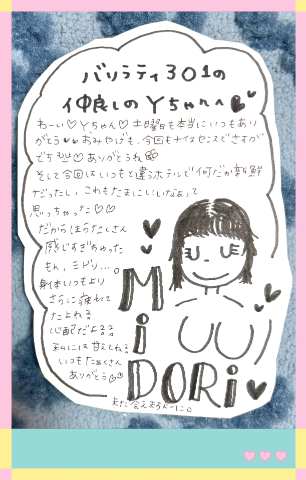 バリラティ301の
仲良しのYちゃんへ
わーい♡Yちゃん♡土曜日も本当にいつもあり
がとう♡♡おみやげも、今回もナイスセンスでさすが
でちゅ♡ありがとうね
そして今回はいつもと違うホテルで何だか新鮮
だったし、これもたまにいいなぁって
思っちゃった♡♡
だからほらたくさん
感じすぎちゃった
もん、ミドリ...。
身体いつもより
さらに疲れて
たよね
心配だよ
私には甘えてね
いつもたぁくさん
ありがとう
MiDORi
また会えますよーに。